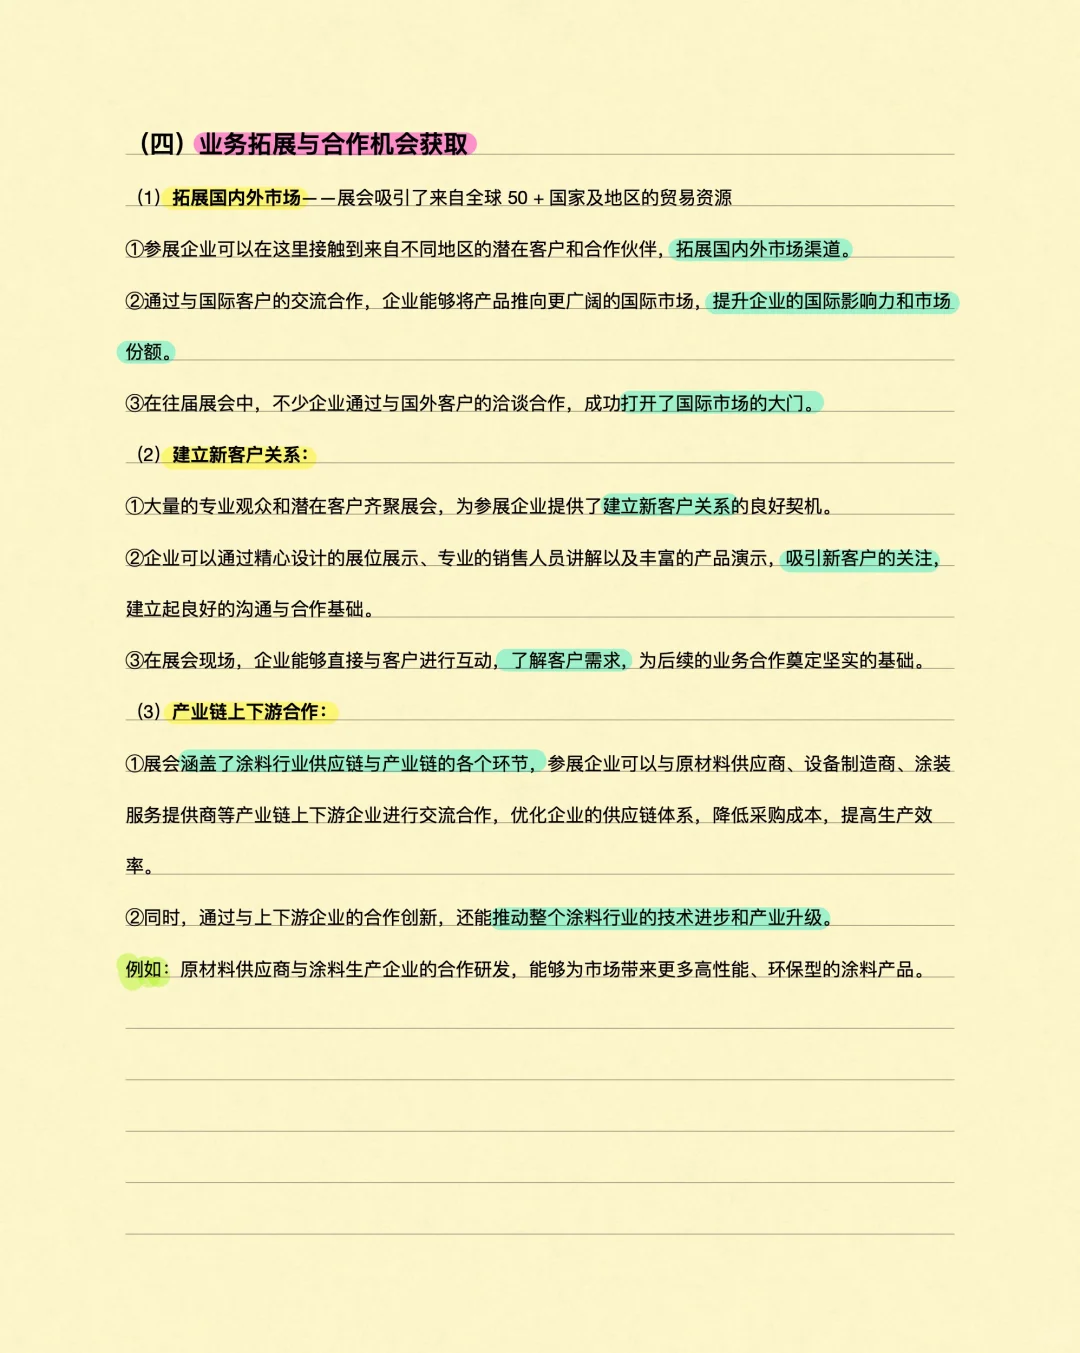 （四）业务拓展与合作机会获取
（1）拓展国内外市场——展会吸引了来自全球 50 + 国家及地区的贸易资源
①参展企业可以在这里接触到来自不同地区的潜在客户和合作伙伴，拓展国内外市场渠道。
②通过与国际客户的交流合作，企业能够将产品推向更广阔的国际市场，提升企业的国际影响力和市场
份额。
③在往届展会中，不少企业通过与国外客户的洽谈合作，成功打开了国际市场的大门。
（2）建立新客户关系：
①大量的专业观众和潜在客户齐聚展会，为参展企业提供了建立新客户关系的良好契机。
②企业可以通过精心设计的展位展示、专业的销售人员讲解以及丰富的产品演示，吸引新客户的关注，
建立起良好的沟通与合作基础。
③在展会现场，企业能够直接与客户进行互动，了解客户需求，为后续的业务合作奠定坚实的基础。
（3）产业链上下游合作：
①展会涵盖了涂料行业供应链与产业链的各个环节，参展企业可以与原材料供应商、设备制造商、涂装
服务提供商等产业链上下游企业进行交流合作，优化企业的供应链体系，降低采购成本，提高生产效
率。
②同时，通过与上下游企业的合作创新，还能推动整个涂料行业的技术进步和产业升级。
例如：原材料供应商与涂料生产企业的合作研发，能够为市场带来更多高性能、环保型的涂料产品。